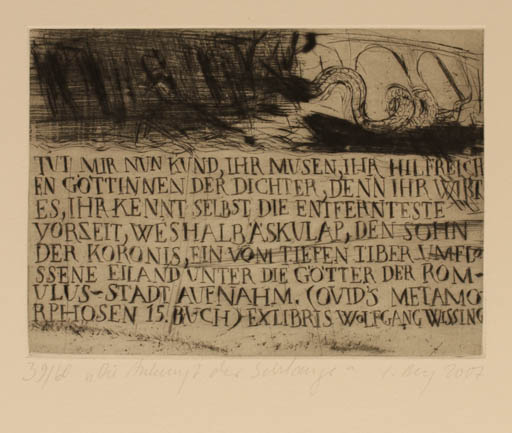 TUT MIR NUN KUND, IHR MUSEN, IHR HILFREICH
EN GÖTTINNEN DER DICHTER, DENN IHR WIßT
ES, IHR KENNT SELBST DIE ENTFERNTESTE
VORZEIT, WESHALB ÄSKULAP, DEN SOHN
DER KORONIS, EIN VOM TIEFEN TIBER UMFLO
SSENE EILAND UNTER DIE GÖTTER DER ROM-
ULUS-STADT AUFNAHM. (OVID'S METAMO
RPHOSEN 15. BUCH) EXLIBRIS WOLFGANG WISSING
39/60 „Die Ankunft der Schlange“ 2007